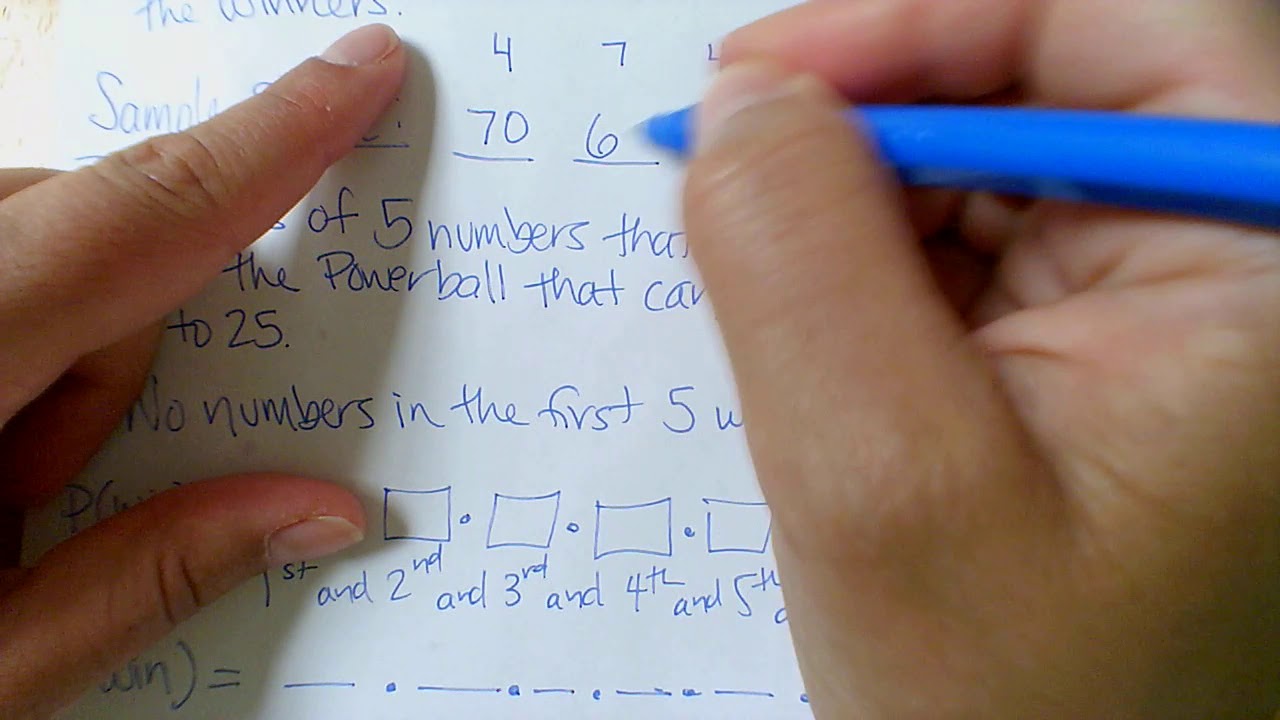 the winners.
4 7 4
Sample
70 6
of 5 numbers that
the Powerball that can
to 25.
No numbers in the first 5
1st and 2nd and 3rd and 4th and 5th
win) =